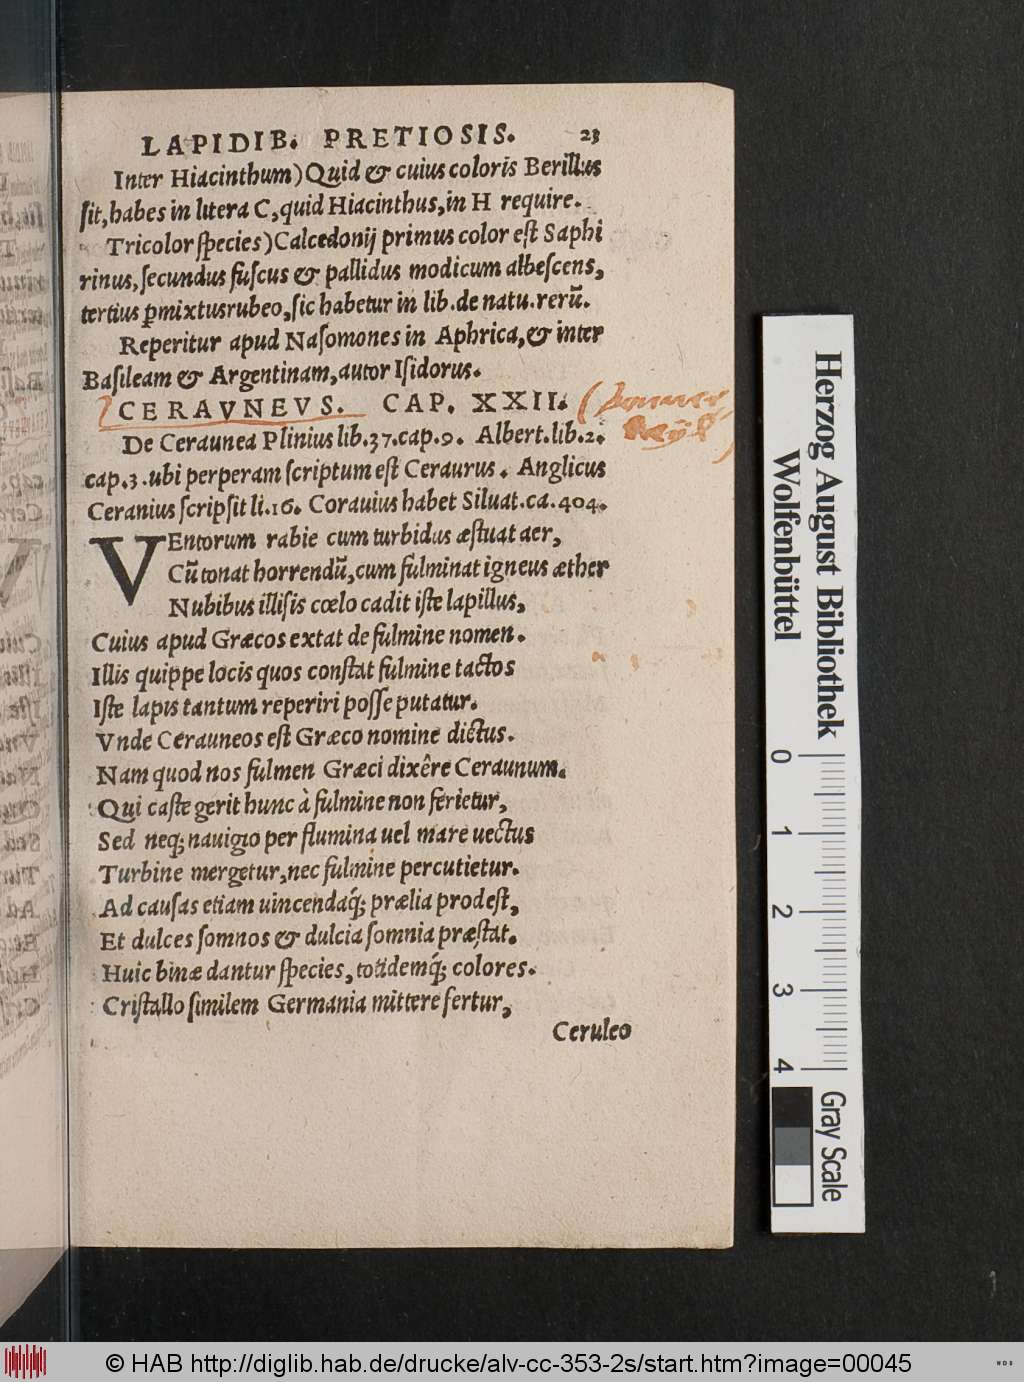 LAPIDIB. PRETIOSIS. 23
Inter Hiacinthum) Quid & cuius coloris Berillus
sit, habes in litera C, quid Hiacinthus, in H require.
Tricolor species) Calcedonij primus color est Saphi
rinus, secundus fuscus & pallidus modicum albescens,
tertius ꝑmixtus rubeo, sic habetur in lib. de natu. rerũ.
Reperitur apud Nasomones in Aphrica, & inter
Basileam & Argentinam, autor Isidorus.
CERAVNEVS. CAP. XXII.
De Ceraunea Plinius lib. 37. cap. 9. Albert. lib. 2.
cap. 3. ubi perperam scriptum est Ceraurus. Anglicus
Ceranius scripsit li. 16. Corauius habet Siluat. ca. 404.
VEntorum rabie cum turbidus æstuat aer,
Cũ tonat horrendũ, cum fulminat igneus æther
Nubibus illisis cœlo cadit iste lapillus,
Cuius apud Græcos extat de fulmine nomen.
Illis quippe locis quos constat fulmine tactos
Iste lapis tantum reperiri posse putatur.
Vnde Cerauneos est Græco nomine dictus.
Nam quod nos fulmen Græci dixêre Ceraunum.
Qui caste gerit hunc à fulmine non ferietur,
Sed neq; nauigio per flumina uel mare uectus
Turbine mergetur, nec fulmine percutietur.
Ad causas etiam uincendaq́; prælia prodest,
Et dulces somnos & dulcia somnia præstat.
Huic binæ dantur species, totidemq́; colores.
Cristallo similem Germania mittere fertur,
Ceruleo
Herzog August Bibliothek
Wolfenbüttel
0 1 2 3 4
Gray Scale
© HAB http://diglib.hab.de/drucke/alv-cc-353-2s/start.htm?image=00045